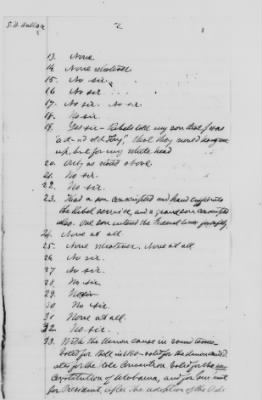 2
13. None
14. None whatever
15. No sir.
16. No sir
17. No sir. No sir.
18. No sir
19. Yes sir - Rebels told my son that I was
"a d-n-d old Tory," that they would hang me
up, but for my white head
20. Only as stated above
21. No sir.
22. No sir.
23. Had a son conscripted and
the Rebel service, and a grandson conscripted
also. One son entered the Federal lines
24. None at all
25. None whatever. None at all
26. No sir.
27. No sir.
28. No sir
29. No sir
30. No sir
31. None at all.
32. No sir.
33. With the Union cause in
voted for Bell in 1860 - voted for the Union candid
ates for the Convention voted for the
Constitution of Alabama, and for
for President, after the adoption of the